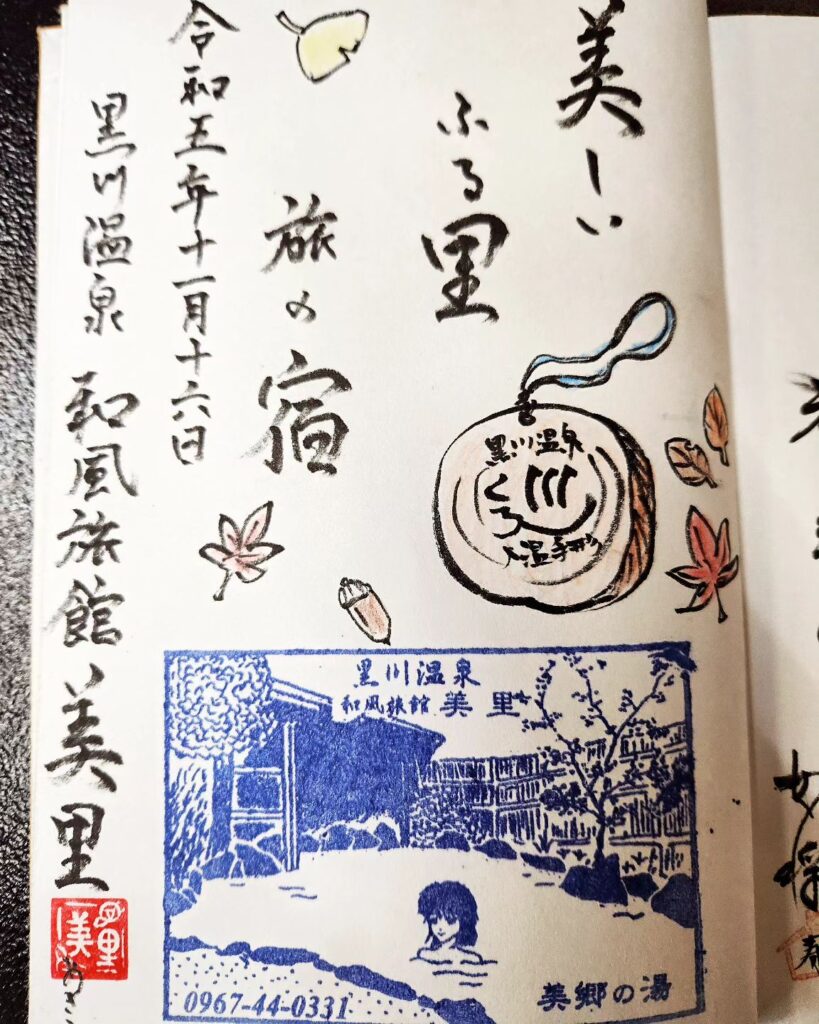 美しい
ふる里
旅の宿
令和五年十一月十六日
黒川温泉 和風旅館 美里
黒川温泉
くろ
入湯手形
黒川温泉
和風旅館 美里
美郷の湯
0967-44-0331
美里